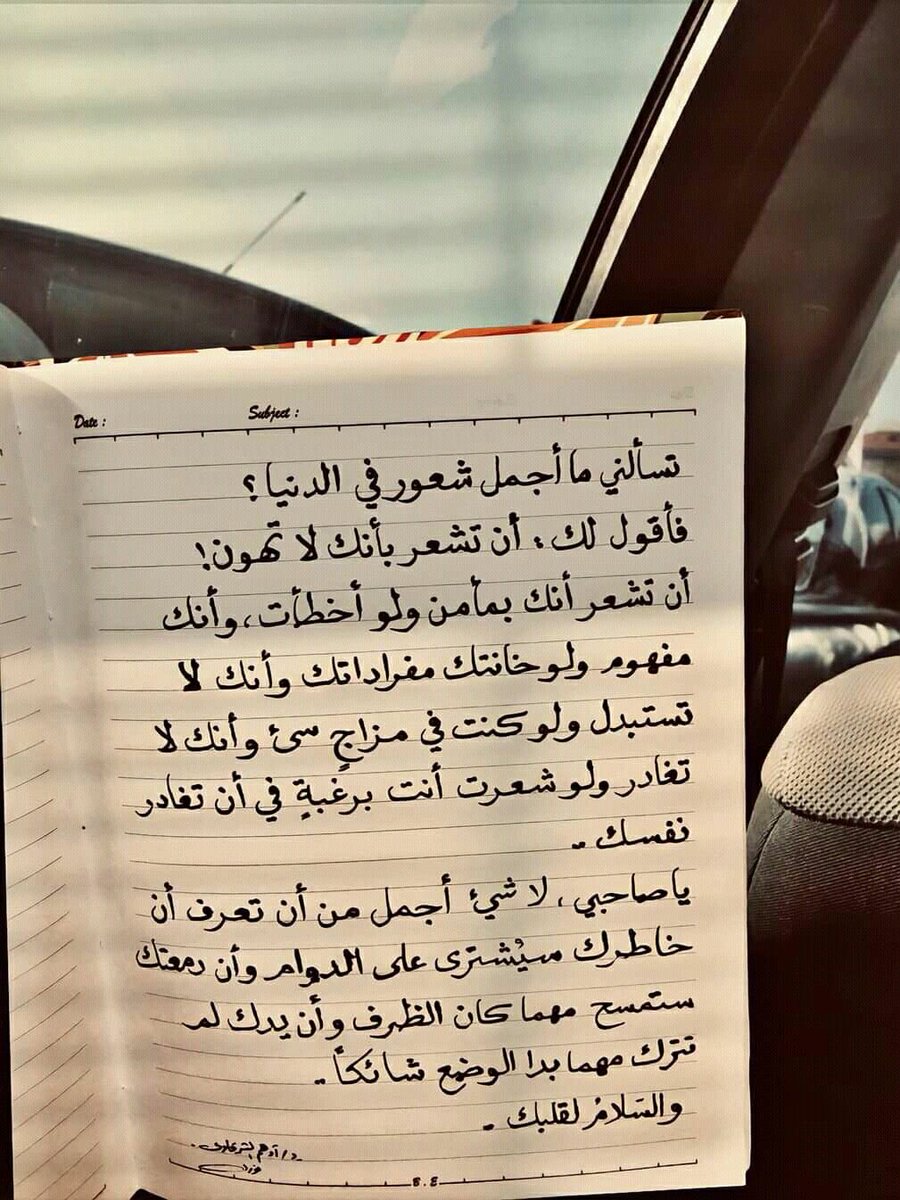 Date :
Subject :
تسألني ما أجمل شعور في الدنيا؟
فأقول لك : أن تشعر بأنك لا تهون!
أن تشعر أنك بمأمن ولو أخطأت، وأنك
مفهوم ولو خانتك مفراداتك وأنك لا
تستبدل ولو كنت في مزاجٍ سئ وأنك لا
تغادر ولو شعرت أنت برغبةٍ في أن تغادر
نفسك ..
ياصاحبي، لا شيئ أجمل من أن تعرف أن
خاطرك سيُشترى على الدوام وأن دمعتك
ستمسح مهما كان الظرف وأن يدك لم
تترك مهما بدا الوضع شائكاً ..
والسَلامُ لقلبك .
د/أدهم الشرقاوي